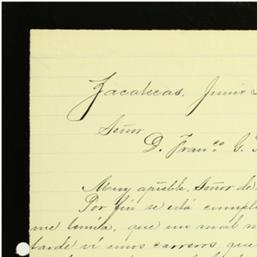 Zacatecas, Junio
Señor
D. Fran.co G.
Muy apreble. Señor de
Por fin se está cumpl
me temía, que un mal n
tarde ví unos carreros que